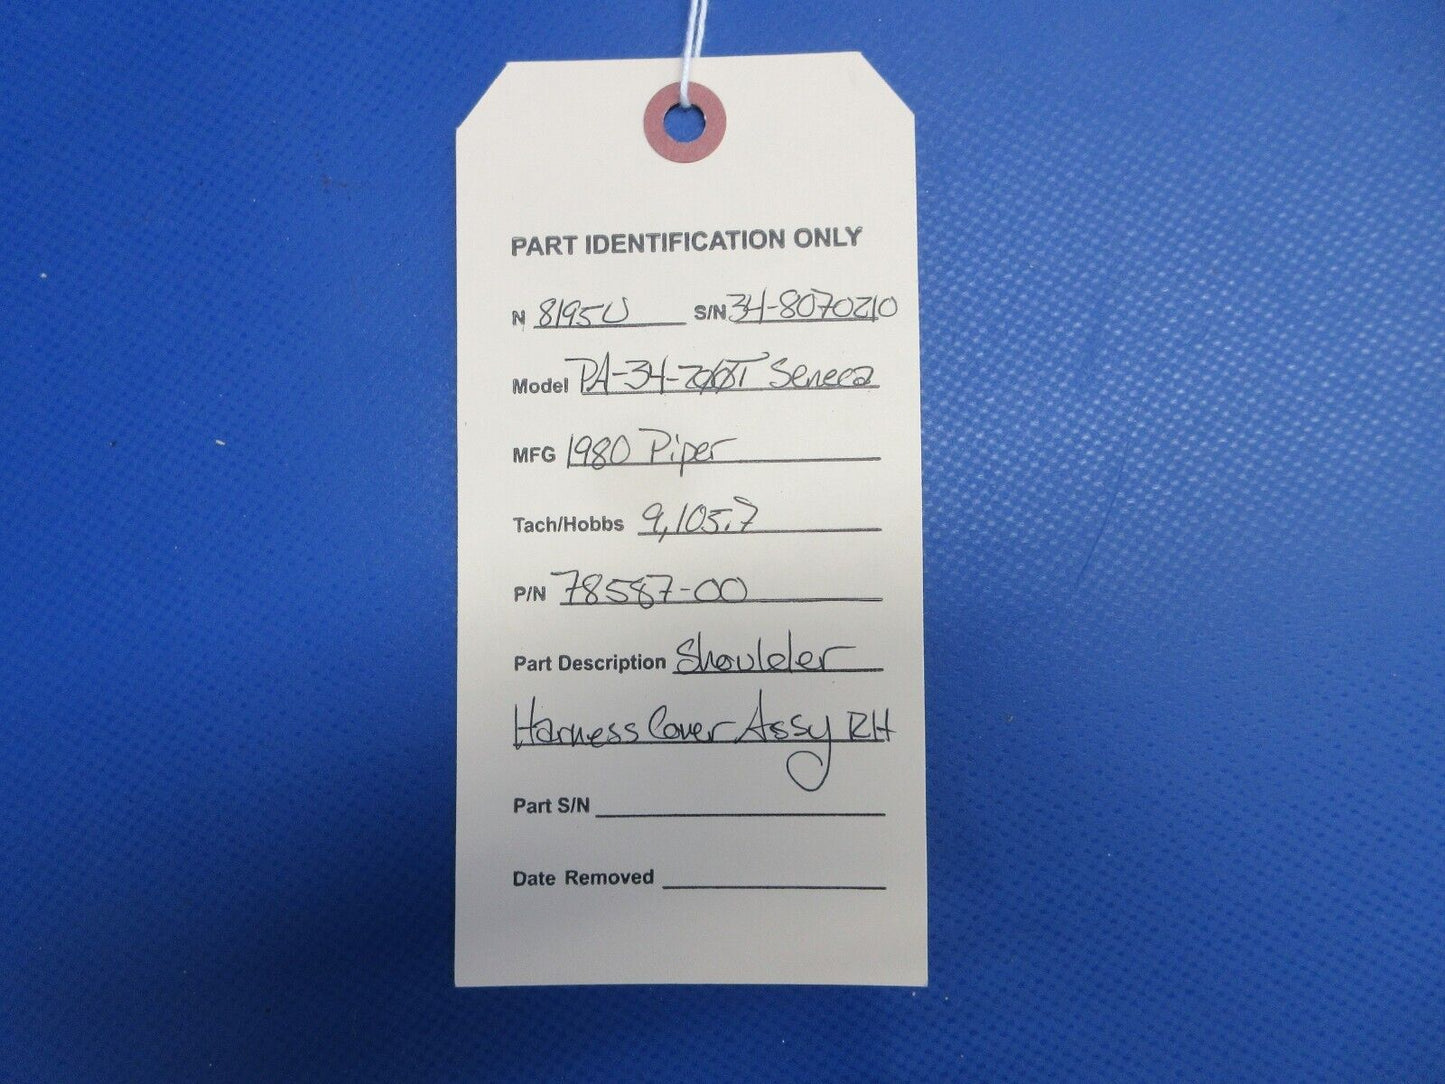 PART IDENTIFICATION ONLY
N 8195U S/N 34-8070210
Model PA-34-200T Seneca
MFG 1980 Piper
Tach/Hobbs 9,105.7
P/N 78587-00
Part Description Shoulder
Harness Cover Assy RH
Part S/N
Date Removed